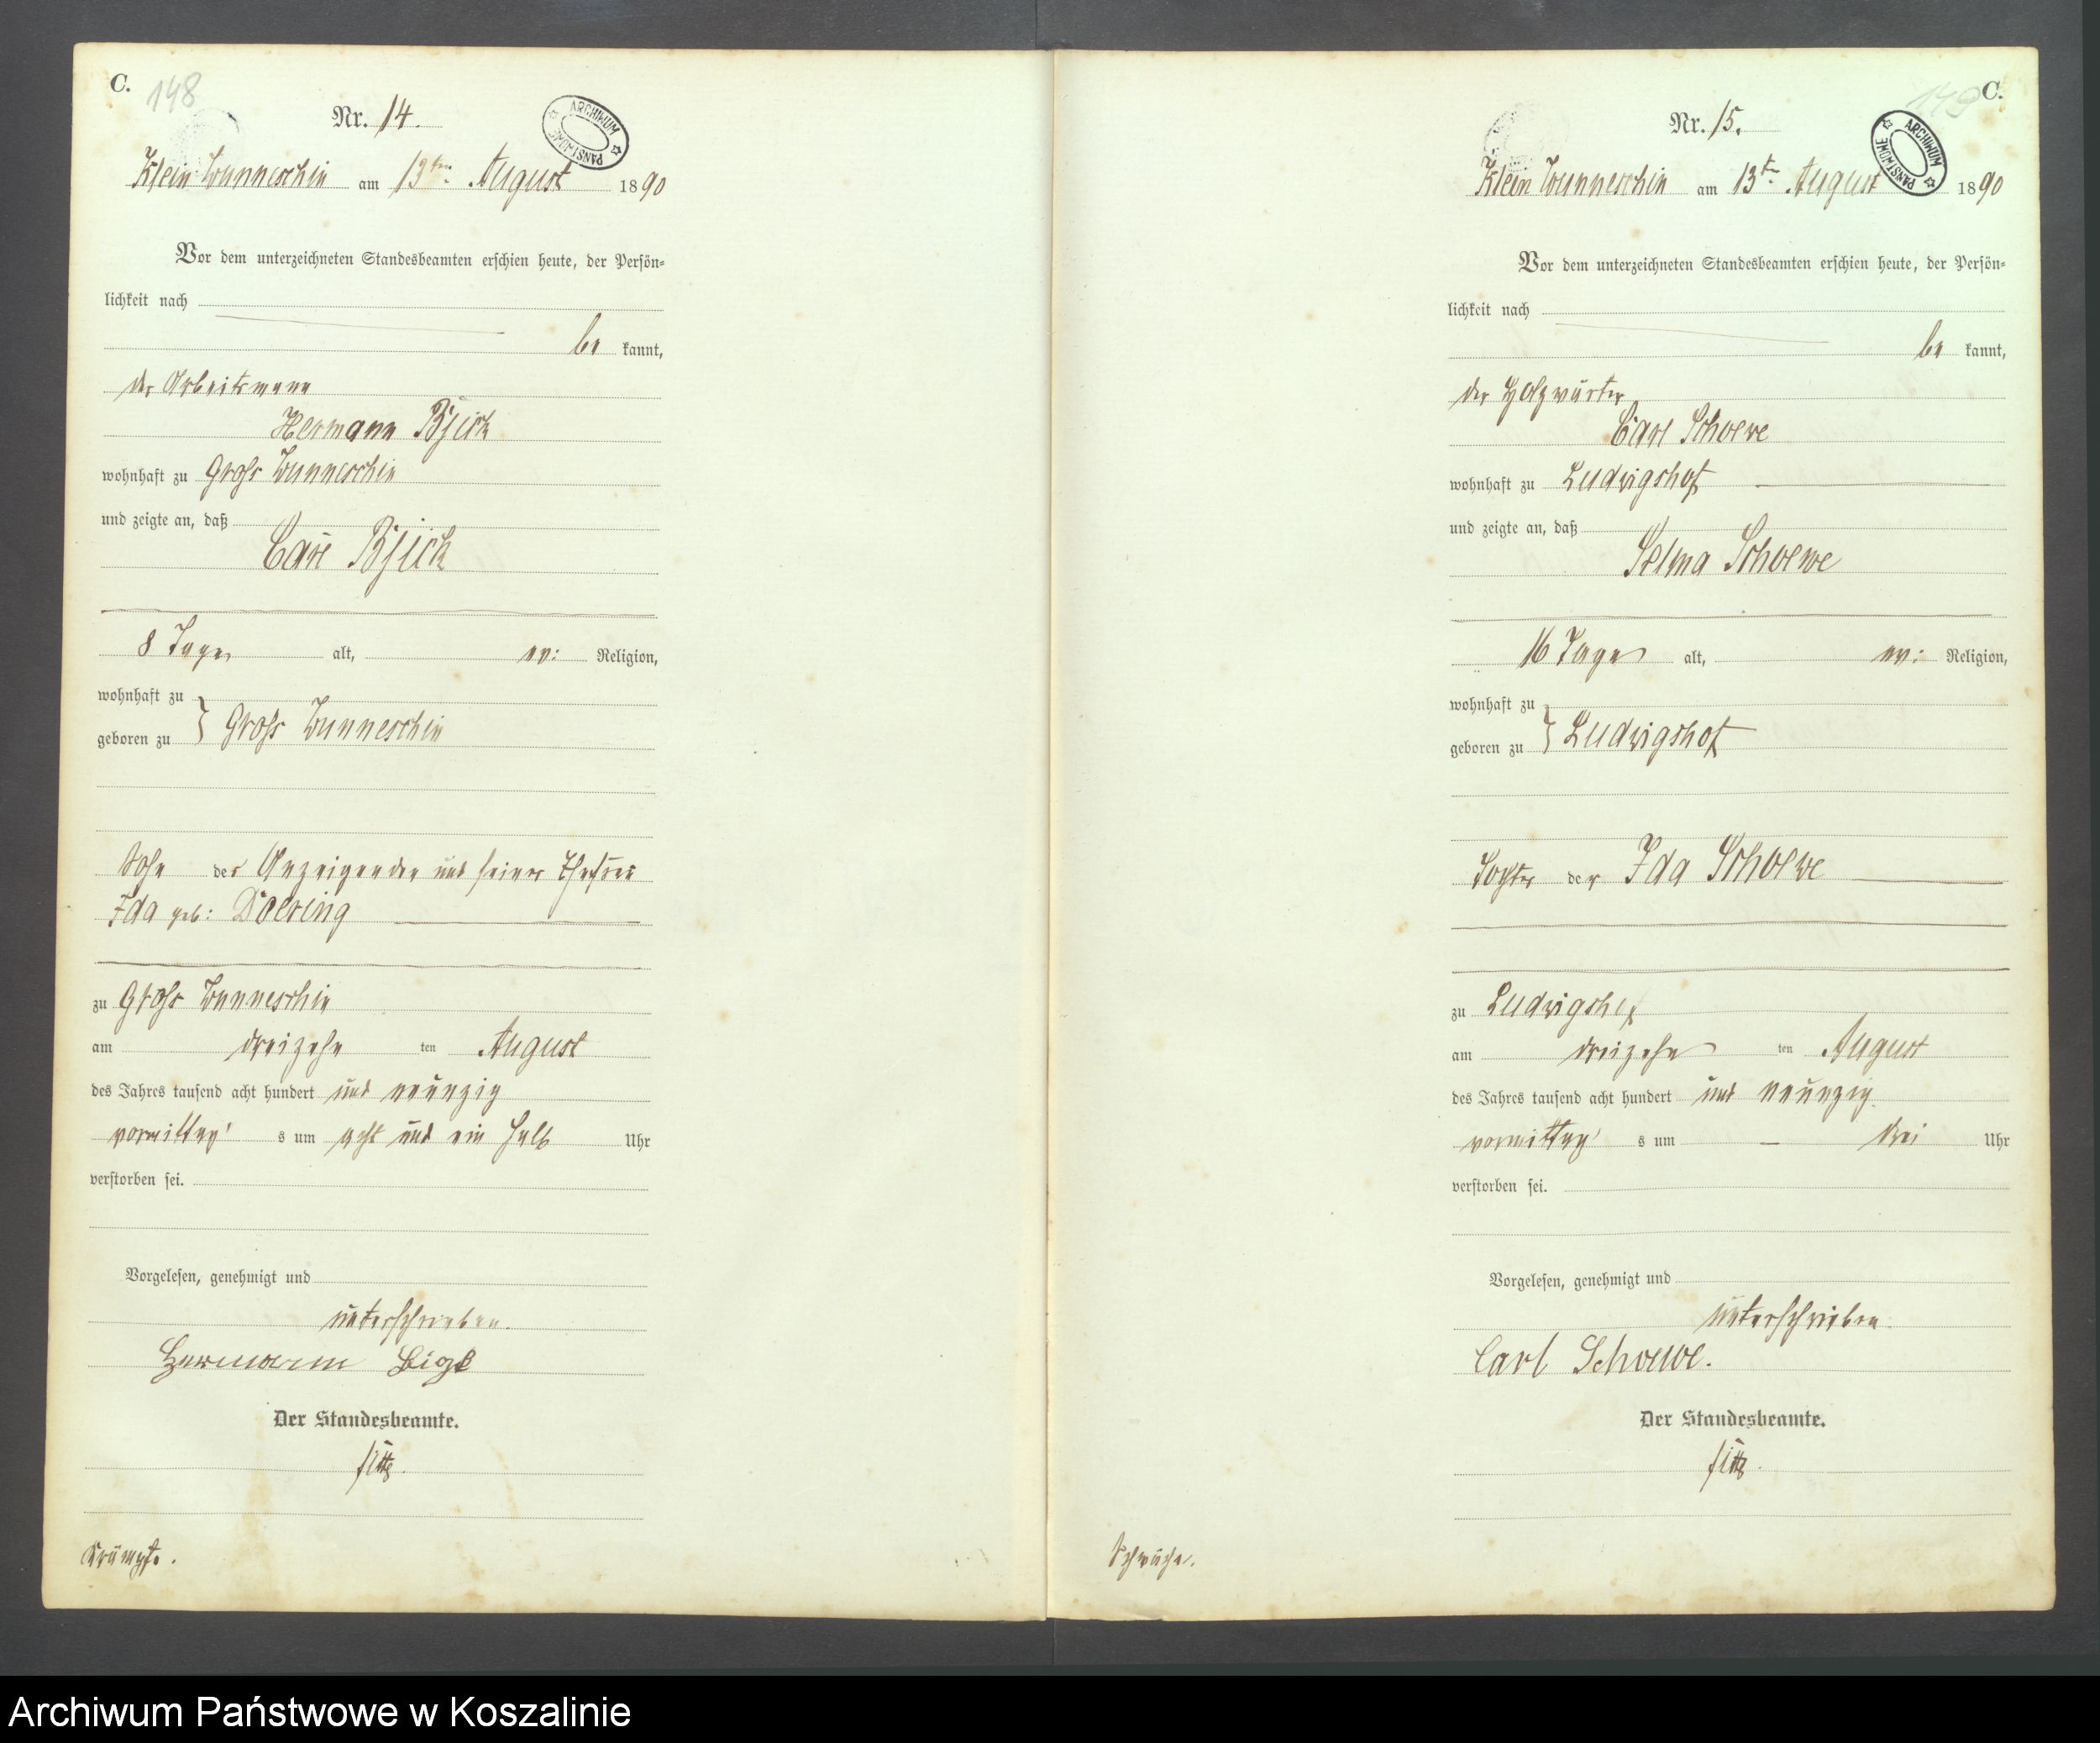 C. 148
Nr. 14.
ARCHIWUM PAŃSTWOWE
Klein Wunneschin am 13ten August 1890
Vor dem unterzeichneten Standesbeamten erschien heute, der Persön-
lichkeit nach
be kannt,
der Arbeitsmann
Hermann
wohnhaft zu Groß Wunneschin
und zeigte an, daß
Carl
8 Tage alt, ev: Religion,
wohnhaft zu
geboren zu } Groß Wunneschin
Sohn des Anzeigenden und seiner Ehefrau
Ida geb: Doering
zu Groß Wunneschin
am dreizehn ten August
des Jahres tausend acht hundert und neunzig
vormittag s um acht und ein halb Uhr
verstorben sei.
Vorgelesen, genehmigt und
unterschrieben.
Hermann
Der Standesbeamte.
Krämpfe.
149 C.
Nr. 15.
ARCHIWUM PAŃSTWOWE
Klein Wunneschin am 13t August 1890
Vor dem unterzeichneten Standesbeamten erschien heute, der Persön-
lichkeit nach
be kannt,
der Holzwärter
Carl Schoewe
wohnhaft zu Ludwigshof
und zeigte an, daß
Selma Schoewe
16 Tage alt, ev: Religion,
wohnhaft zu
geboren zu } Ludwigshof
Tochter der Ida Schoewe
zu Ludwigshof
am dreizehn ten August
des Jahres tausend acht hundert und neunzig
vormittag s um — drei Uhr
verstorben sei.
Vorgelesen, genehmigt und
unterschrieben.
Carl Schoewe.
Der Standesbeamte.
Schwäche.
Archiwum Państwowe w Koszalinie